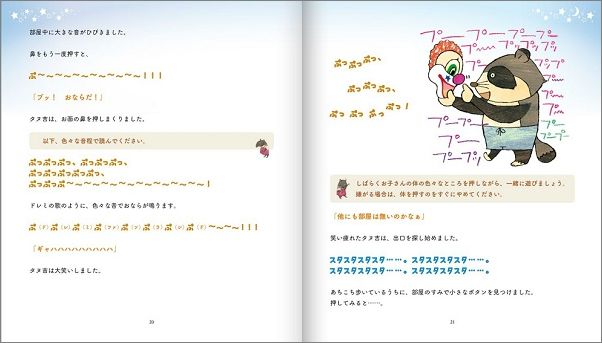 部屋中に大きな音がひびきました。
鼻をもう一度押すと、
ぷ〜〜〜〜〜〜〜〜〜〜!!!
「プッ! おならだ!」
タヌ吉は、お面の鼻を押しまくりました。
以下、色々な音程で読んでください。
ぷっぷっぷっ、ぷっぷっぷっ、
ぷっぷっぷっぷっぷっぷっ、
ぷっぷっぷ〜〜〜〜〜〜〜〜〜〜〜!
ドレミの歌のように、色々な音でおならが鳴ります。
ぷ(ド)ぷ(レ)ぷ(ミ)ぷ(ファ)ぷ(ソ)ぷ(ラ)ぷ(シ)ぷ(ド)〜〜〜!!
「ギャハハハハハハハハハ」
タヌ吉は大笑いしました。
20
ぷっぷっぷっ、
ぷっぷっぷっ、
ぷっ ぷっ ぷっ!
プー プー プー
プープー
プープーッ
しばらくお子さんの体の色々なところを押しながら、一緒に遊びましょう。
嫌がる場合は、体を押すのをすぐにやめてください。
「他にも部屋は無いのかなぁ」
笑い疲れたタヌ吉は、出口を探し始めました。
スタスタスタスタ……。スタスタスタスタ……。
スタスタスタスタ……。スタスタスタスタ……。
あちこち歩いているうちに、部屋のすみで小さなボタンを見つけました。
押してみると……。
21